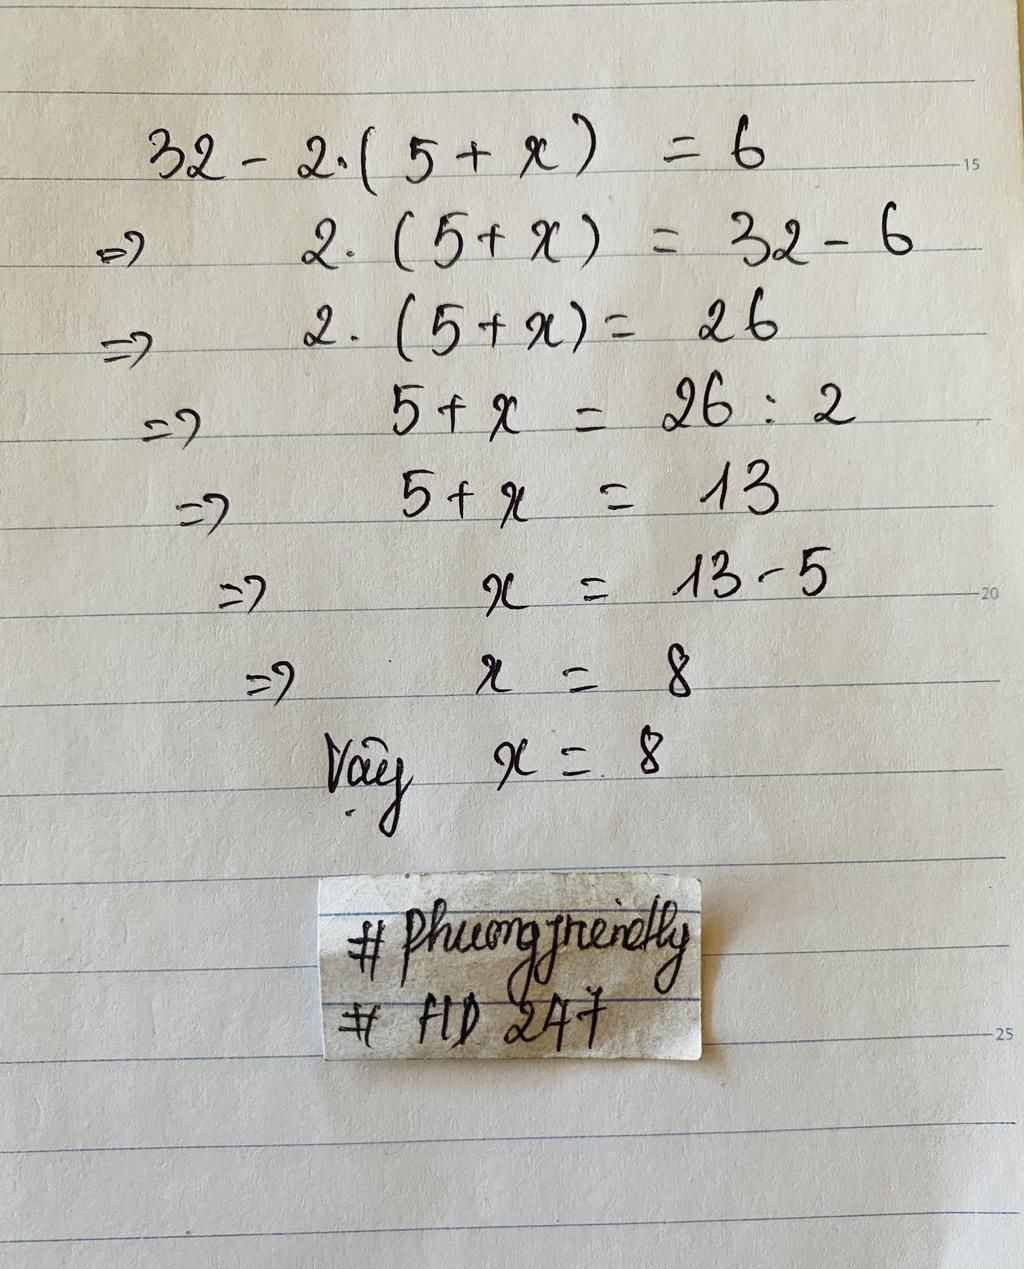 32 - 2.( 5 + x ) = 6
15
=> 2. ( 5 + x ) = 32 - 6
=> 2. ( 5 + x ) = 26
=> 5 + x = 26 : 2
=> 5 + x = 13
=> x = 13 - 5
20
=> x = 8
Vậy x = 8
# Phuongfriendly
# HD 247
25